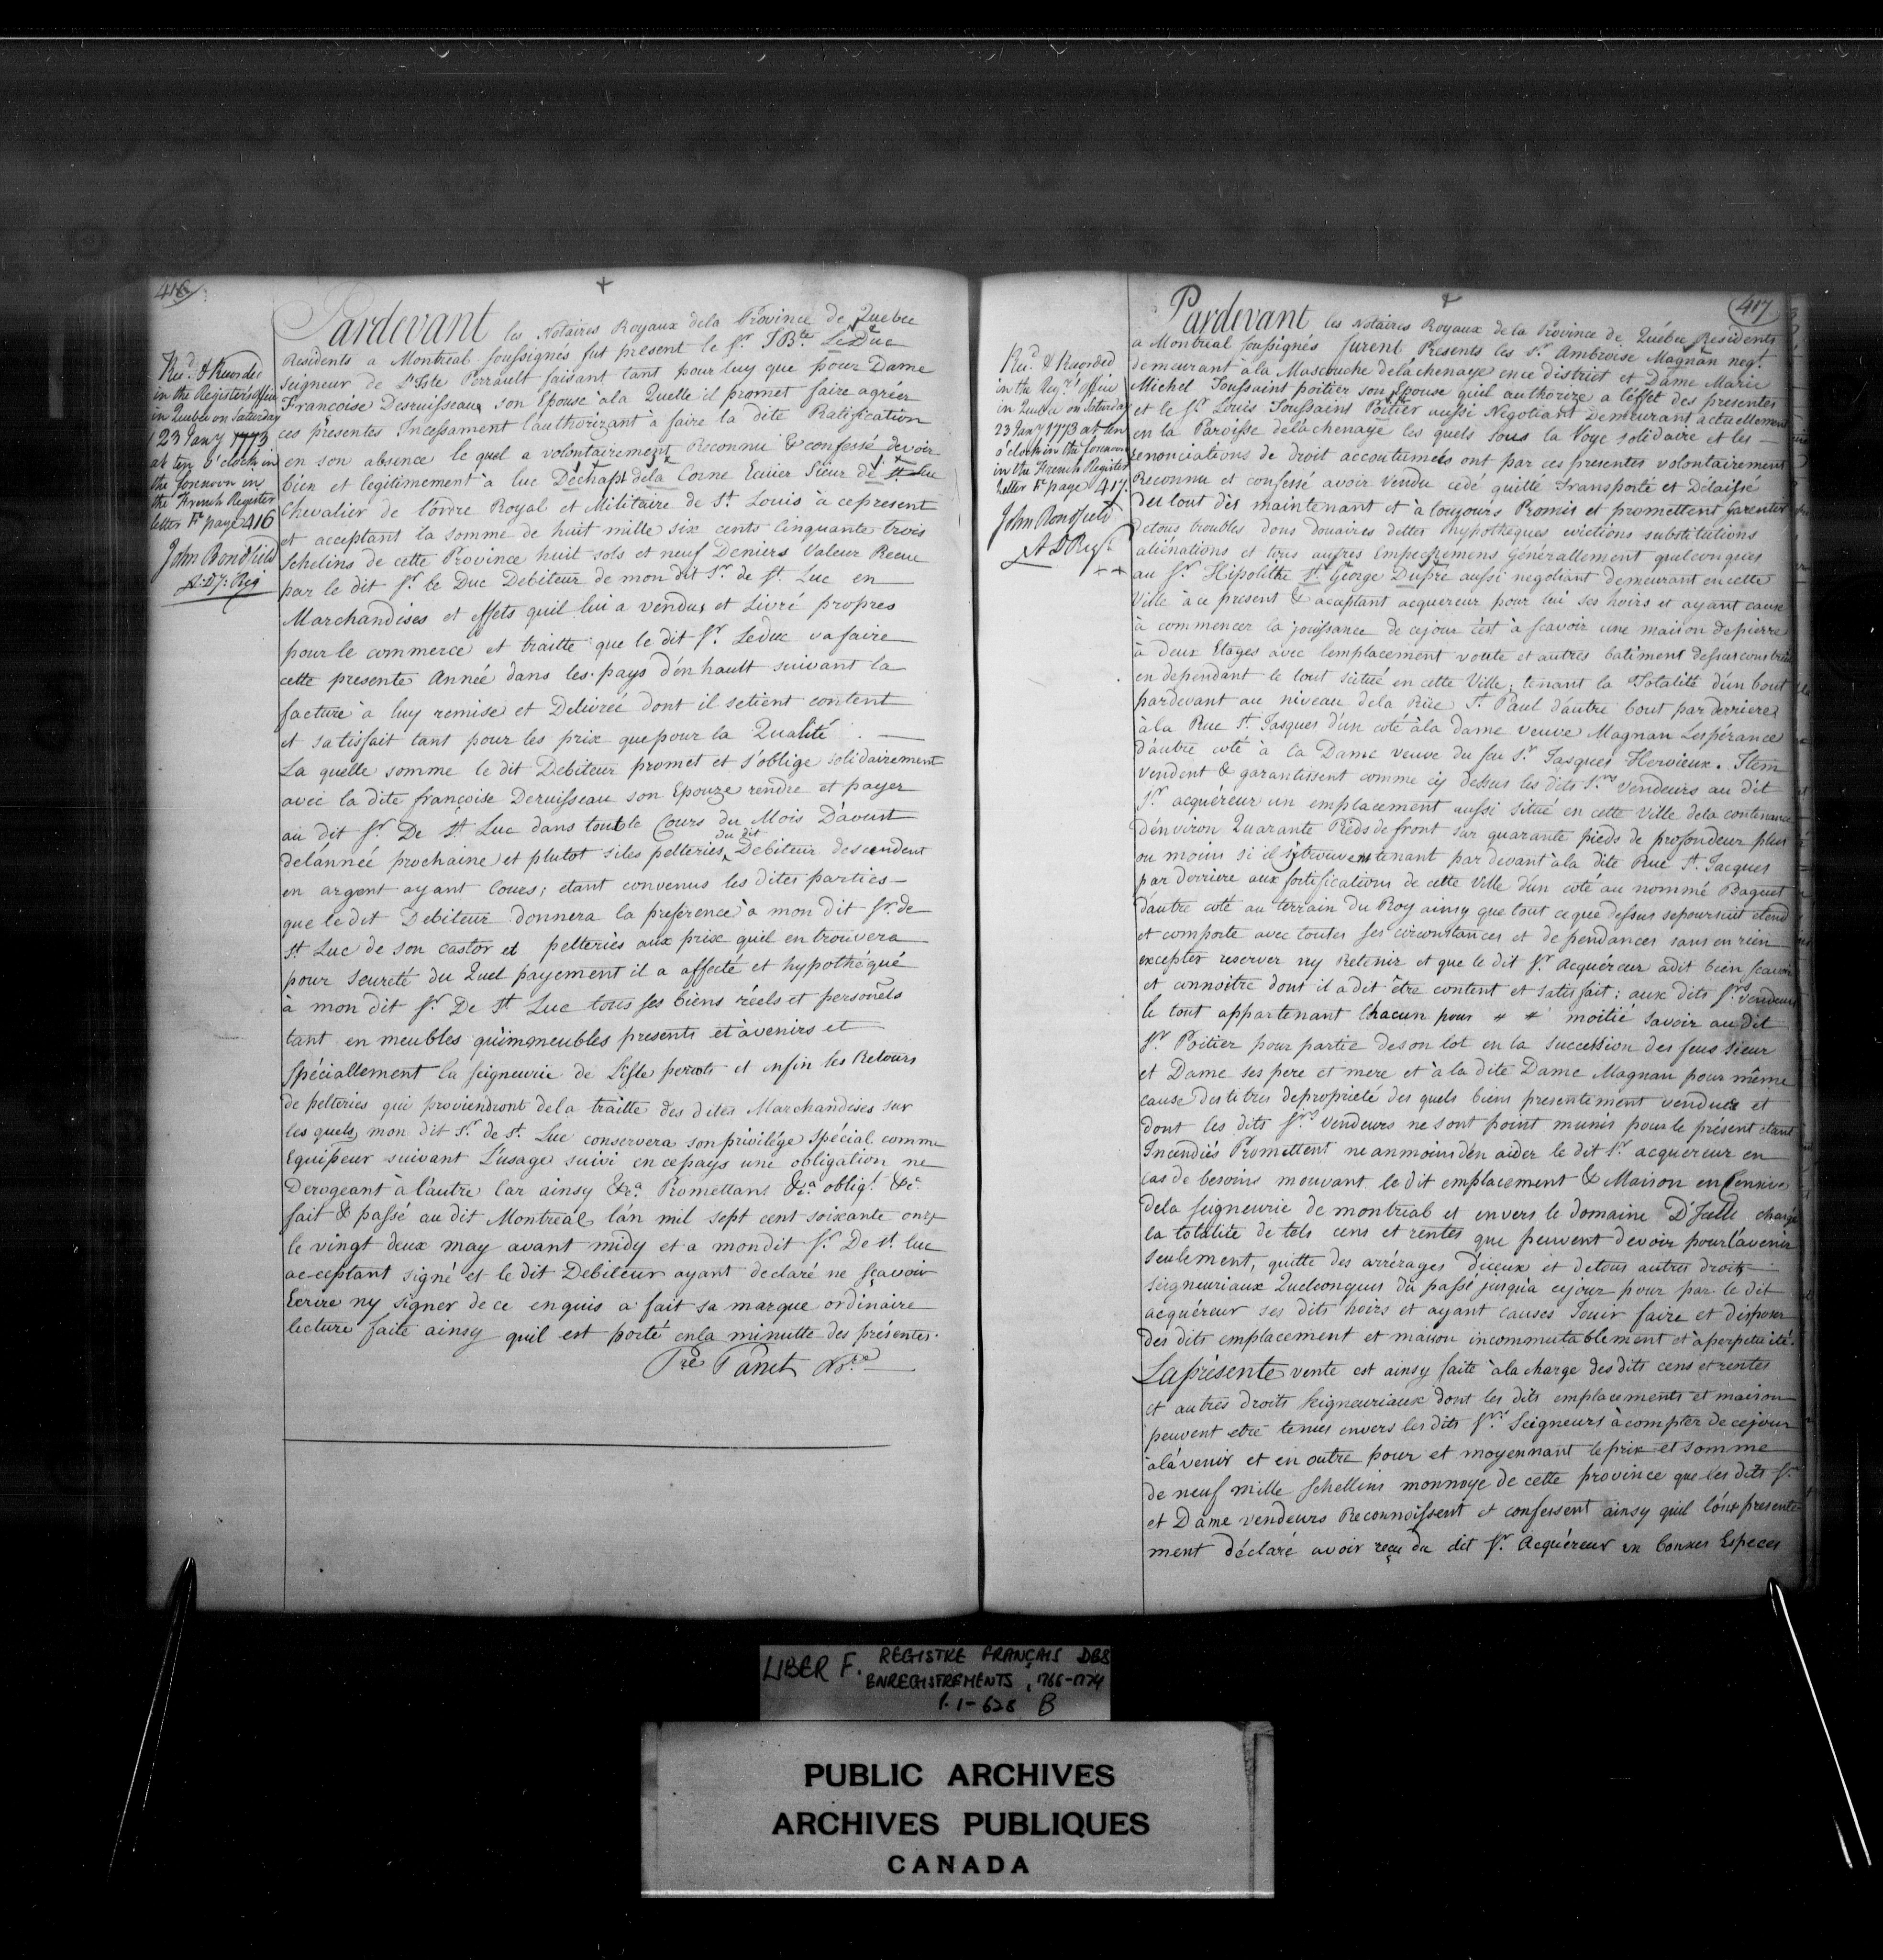 416
Pardevant les Notaires Royaux dela Province de Quebec
Residents a Montreal soussignés fut present le Sr. J Bte. LeDuc
Seigneur de L'Isle Perrault faisant tant pour luy que pour Dame
Francoise Desruisseaux son Epouse à la Quelle il promet faire agréer
ces présentes Incessament l'authorizant à faire la dite Ratification
en son absence le quel a volontairement Reconnu & confessé devoir
bien et legitimement à luc Dechapt dela Corne Ecuier Sieur de St. Luc
Chevalier de l'ordre Royal et Militaire de St. Louis à cepresent
et acceptant la somme de huit mille six cents Cinquante trois
Schelins de cette Province huit sols et neuf Deniers Valeur Recue
par le dit Sr. le Duc Debiteur de mon dit Sr. de St. Luc en
Marchandises et effets quil lui a vendus et Livré propres
pour le commerce et traitte que le dit Sr. Leduc vafaire
cette presente Année dans les pays d'en hault suivant la
facture à luy remise et Delivrée dont il setient content
et satisfait tant pour les prix que pour la Qualité
La quelle somme le dit Debiteur promet et s'oblige solidairement
avec la dite françoise Deruisseau son Epouze rendre et payer
au dit Sr. De St. Luc dans toutle Cours du Mois D'aoust
delánnée prochaine et plutot siles pelteries du dit Debiteur descendent
en argent ayant Cours; etant convenus les dites parties
que le dit Debiteur donnera la preference à mon dit Sr. de
St. Luc de son castor et pelteries aux prix quil en trouvera
pour seureté du Quel payement il a affecté et hypothéqué
à mon dit Sr. De St. Luc tous ses biens réels et personels
tant en meubles qu'immeubles presents et àvenirs et
spéciallement la seigneurie de L'isle perrots et enfin les Retours
de pelteries qui proviendront dela traitte des dites Marchandises sur
les quels mon dit Sr. de St. Luc conservera son privilége spécial comme
Equipeur suivant L'usage suivi encepays une obligation ne
Derogeant à l'autre Car ainsy &ca. Promettant &ca. obligt. &c.
fait & passé au dit Montreal l'an mil sept cent soixante onze
le vingt deux may avant midy et a mondit Sr. De St. luc
acceptant signé et le dit Debiteur ayant declaré ne sçavoir
Ecrire ny signer de ce enquis a fait sa marque ordinaire
lecture faite ainsy quil est porté enla minutte des présentes.
Pre Panet Nore
Recd. & Recorded
in the Registers office
in Quebec on Saturday
23 Jany 1773
at ten o'clock in
the forenoon in
the French Register
letter F page 416
John Bondfield
A: Dy: Reg
417
Pardevant les Notaires Royaux de la Province de Québec Residents
a Montreal soussignés furent Presents les Sr. Ambroise Magnan negt.
demeurant à la Mascouche delachenaye ence district et Dame Marie
Michel Toussaint poitier son Epouse quil authorize a léffet des presentes
et le Sr. Louis Toussaint Poitier aussi Negotiant demeurant actuellement
en la Paroisse delachenaye les quels sous la Voye solidaire et les
renonciations de droit accoutumées ont par ces presentes volontairement
Reconnu et confessé avoir vendu cedé quitté Transporté et Délaissé
du tout dès maintenant et à toujours Promis et promettent garentir
detous troubles dons douaires dettes hypotheques evictions substitutions
aliénations et tous autres Empechemens Générallement quelconques
au Sr. Hipolithe St. George Dupré aussi negotiant demeurant encette
Ville à ce present & aceptant acquereur pour lui ses hoirs et ayant cause
à commencer la jouissance de cejour c'est à scavoir une maison depierre
à deux Etages avec lemplacement voute et autres batiment dessus construit
en dependant le tout scitué en cette Ville; tenant la Totalité d'un bout
pardevant au niveau dela Rüe St. Paul d'autre bout par derriere
à la Rue St. Jasques d'un coté à la dame veuve Magnan Lespérance
d'autre coté à la Dame veuve du feu Sr. Jasques Hervieux. Item
vendent & garantissent comme cy dessus les dits Srs. vendeurs au dit
Sr. acquéreur un emplacement aussi situé en cette Ville dela contenance
d'environ Quarante Pieds de front sur quarante pieds de profondeur plus
ou moins si il s'etrouvent tenant par devant à la dite Rue St. Jacques
par derriere aux fortifications de cette Ville d'un coté au nommé Paquet
d'autre coté au terrain du Roy ainsy que tout ceque dessus sepoursuit etend
et comporte avec toutes ses circonstances et dependances sans en rien
excepter reserver ny Retenir et que le dit Sr. Acquéreur adit bien scavoir
et connoitre dont il a dit être content et satisfait: aux dits Srs. vendeurs
le tout appartenant Chacun pour # # moitié savoir au dit
Sr. Poitier pour partie deson lot en la succession des feus sieur
et Dame ses pere et mere et à la dite Dame Magnan pour même
cause des titres depropriété des quels biens presentement vendues et
dont les dits Srs. vendeurs ne sont point munis pour le présent etant
Incendiés Promettent neanmoins d'en aider le dit Sr. acquereur en
cas de besoins mouvant le dit emplacement & Maison en Censive
dela seigneurie de montréal et envers le domaine D'Icelle chargé
la totalité de tels cens et rentes que peuvent devoir pour l'avenir
seulement, quitte des arrérages d'iceux et detous autres droits
seigneuriaux Quelconques du passé jusqu'a cejour pour par le dit
acquéreur ses dits hoirs et ayant causes Jouir faire et disposer
des dits emplacement et maison incommutablement et à perpetuité.
La présente vente est ainsy faite à la charge des dits cens et rentes
et autres droits seigneuriaux dont les dits emplacements et maison
peuvent etre tenus envers les dits Srs. Seigneurs à compter de cejour
à l'avenir et en outre pour et moyennant le prix et somme
de neuf mille schellins monnoye de cette province que les dits Sr.
et Dame vendeurs Reconnoissent et confessent ainsy quil l'ont presente-
ment déclaré avoir reçu du dit Sr. Acquéreur en bonnes Especes
Recd. & Recorded
in the Regrs. office
in Quebec on Saturday
23 Jany 1773 at ten
o'clock in the forenoon
in the French Register
Letter F page 417.
John Bondfield
A D Regr.
LIBER F. REGISTRE FRANÇAIS DES
ENREGISTREMENTS, 1766-1774
P. 1-628 B
PUBLIC ARCHIVES
ARCHIVES PUBLIQUES
CANADA